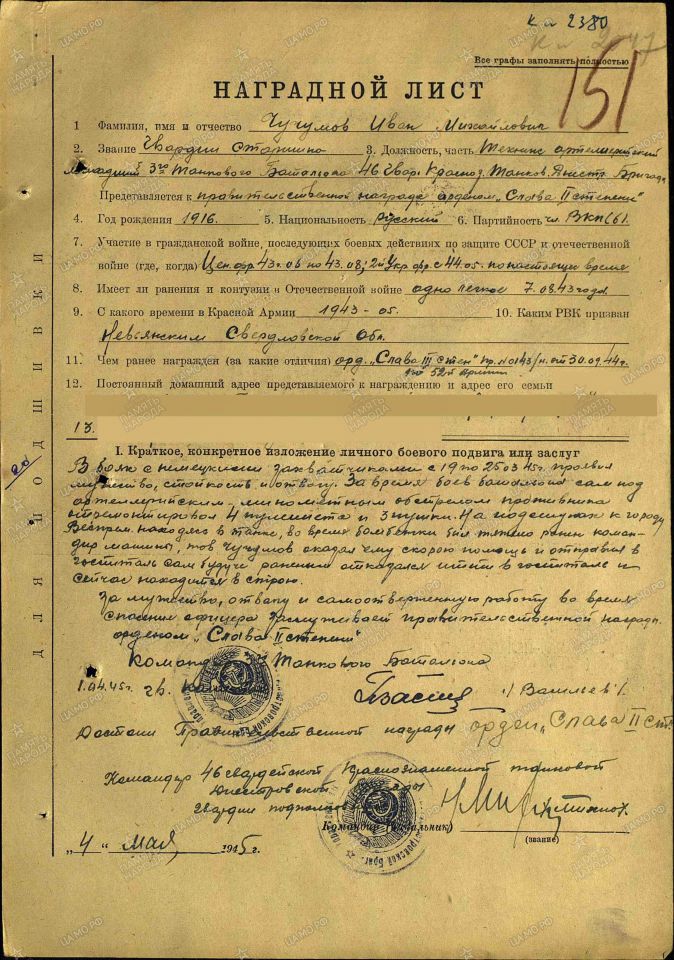 к-л 2380
Все графы заполнять полностью
151
НАГРАДНОЙ ЛИСТ
1 Фамилия, имя и отчество Чучумов Иван Михайлович
2. Звание Гвардии Старшина 3. Должность, часть Техник артиллерийский
младший 3го Танкового Батальона 46 Гвар. Красноз. Танков. Днестр. Бригады
Представляется к правительственной награде орденом „Слава II степени"
4. Год рождения 1916. 5. Национальность Русский 6. Партийность чл. ВКП(б).
7. Участие в гражданской войне, последующих боевых действиях по защите СССР и отечественной
войне (где, когда) Цен.фр. 43г. 06 по 43. 08; 2й Укр. фр. с 44. 05. по настоящее время
8. Имеет ли ранения и контузии в Отечественной войне одно легкое 7.08.43 года
9. С какого времени в Красной Армии 1943-05. 10. Каким РВК призван
Невьянским Свердловской Обл.
11. Чем ранее награжден (за какие отличия) орд. „Слава III степ" пр. №0143/н. от 30.09.44г.
52ой Армии
12. Постоянный домашний адрес представляемого к награждению и адрес его семьи
13.
I. Краткое, конкретное изложение личного боевого подвига или заслуг
В боях с немецкими захватчиками с 19 по 25.03.45г. проявил
мужество, стойкость и отвагу. За время боев батальона сам под
артиллерийским-минометным обстрелом противника
отремонтировал 4 пулемета и 3 пушки. На подступах к городу
Веспрем находясь в танке, во время бомбежки был тяжело ранен коман-
дир машины, тов Чучумов оказал ему скорою помощь и отправил в
госпиталь сам будучи ранении отказался итти в госпиталь и
сейчас находится в строю.
За мужество, отвагу и самоотверженную работу во время
спасении офицера заслуживает правительственной награды
орденом „Слава II степени"
Командир 3го Танкового Батальона
1.04.45г. гв. /Васильев/.
Достоин Правительственной награды орден „Слава II ст."
Командир 46 гвардейской Краснознаменной танковой
Днестровской
гвардии
Командир (начальник)
(звание)
„4" мая 1945 г.
ДЛЯ ПОДШИВКИ
20
ПАМЯТЬ НАРОДА
ЦАМО.РФ